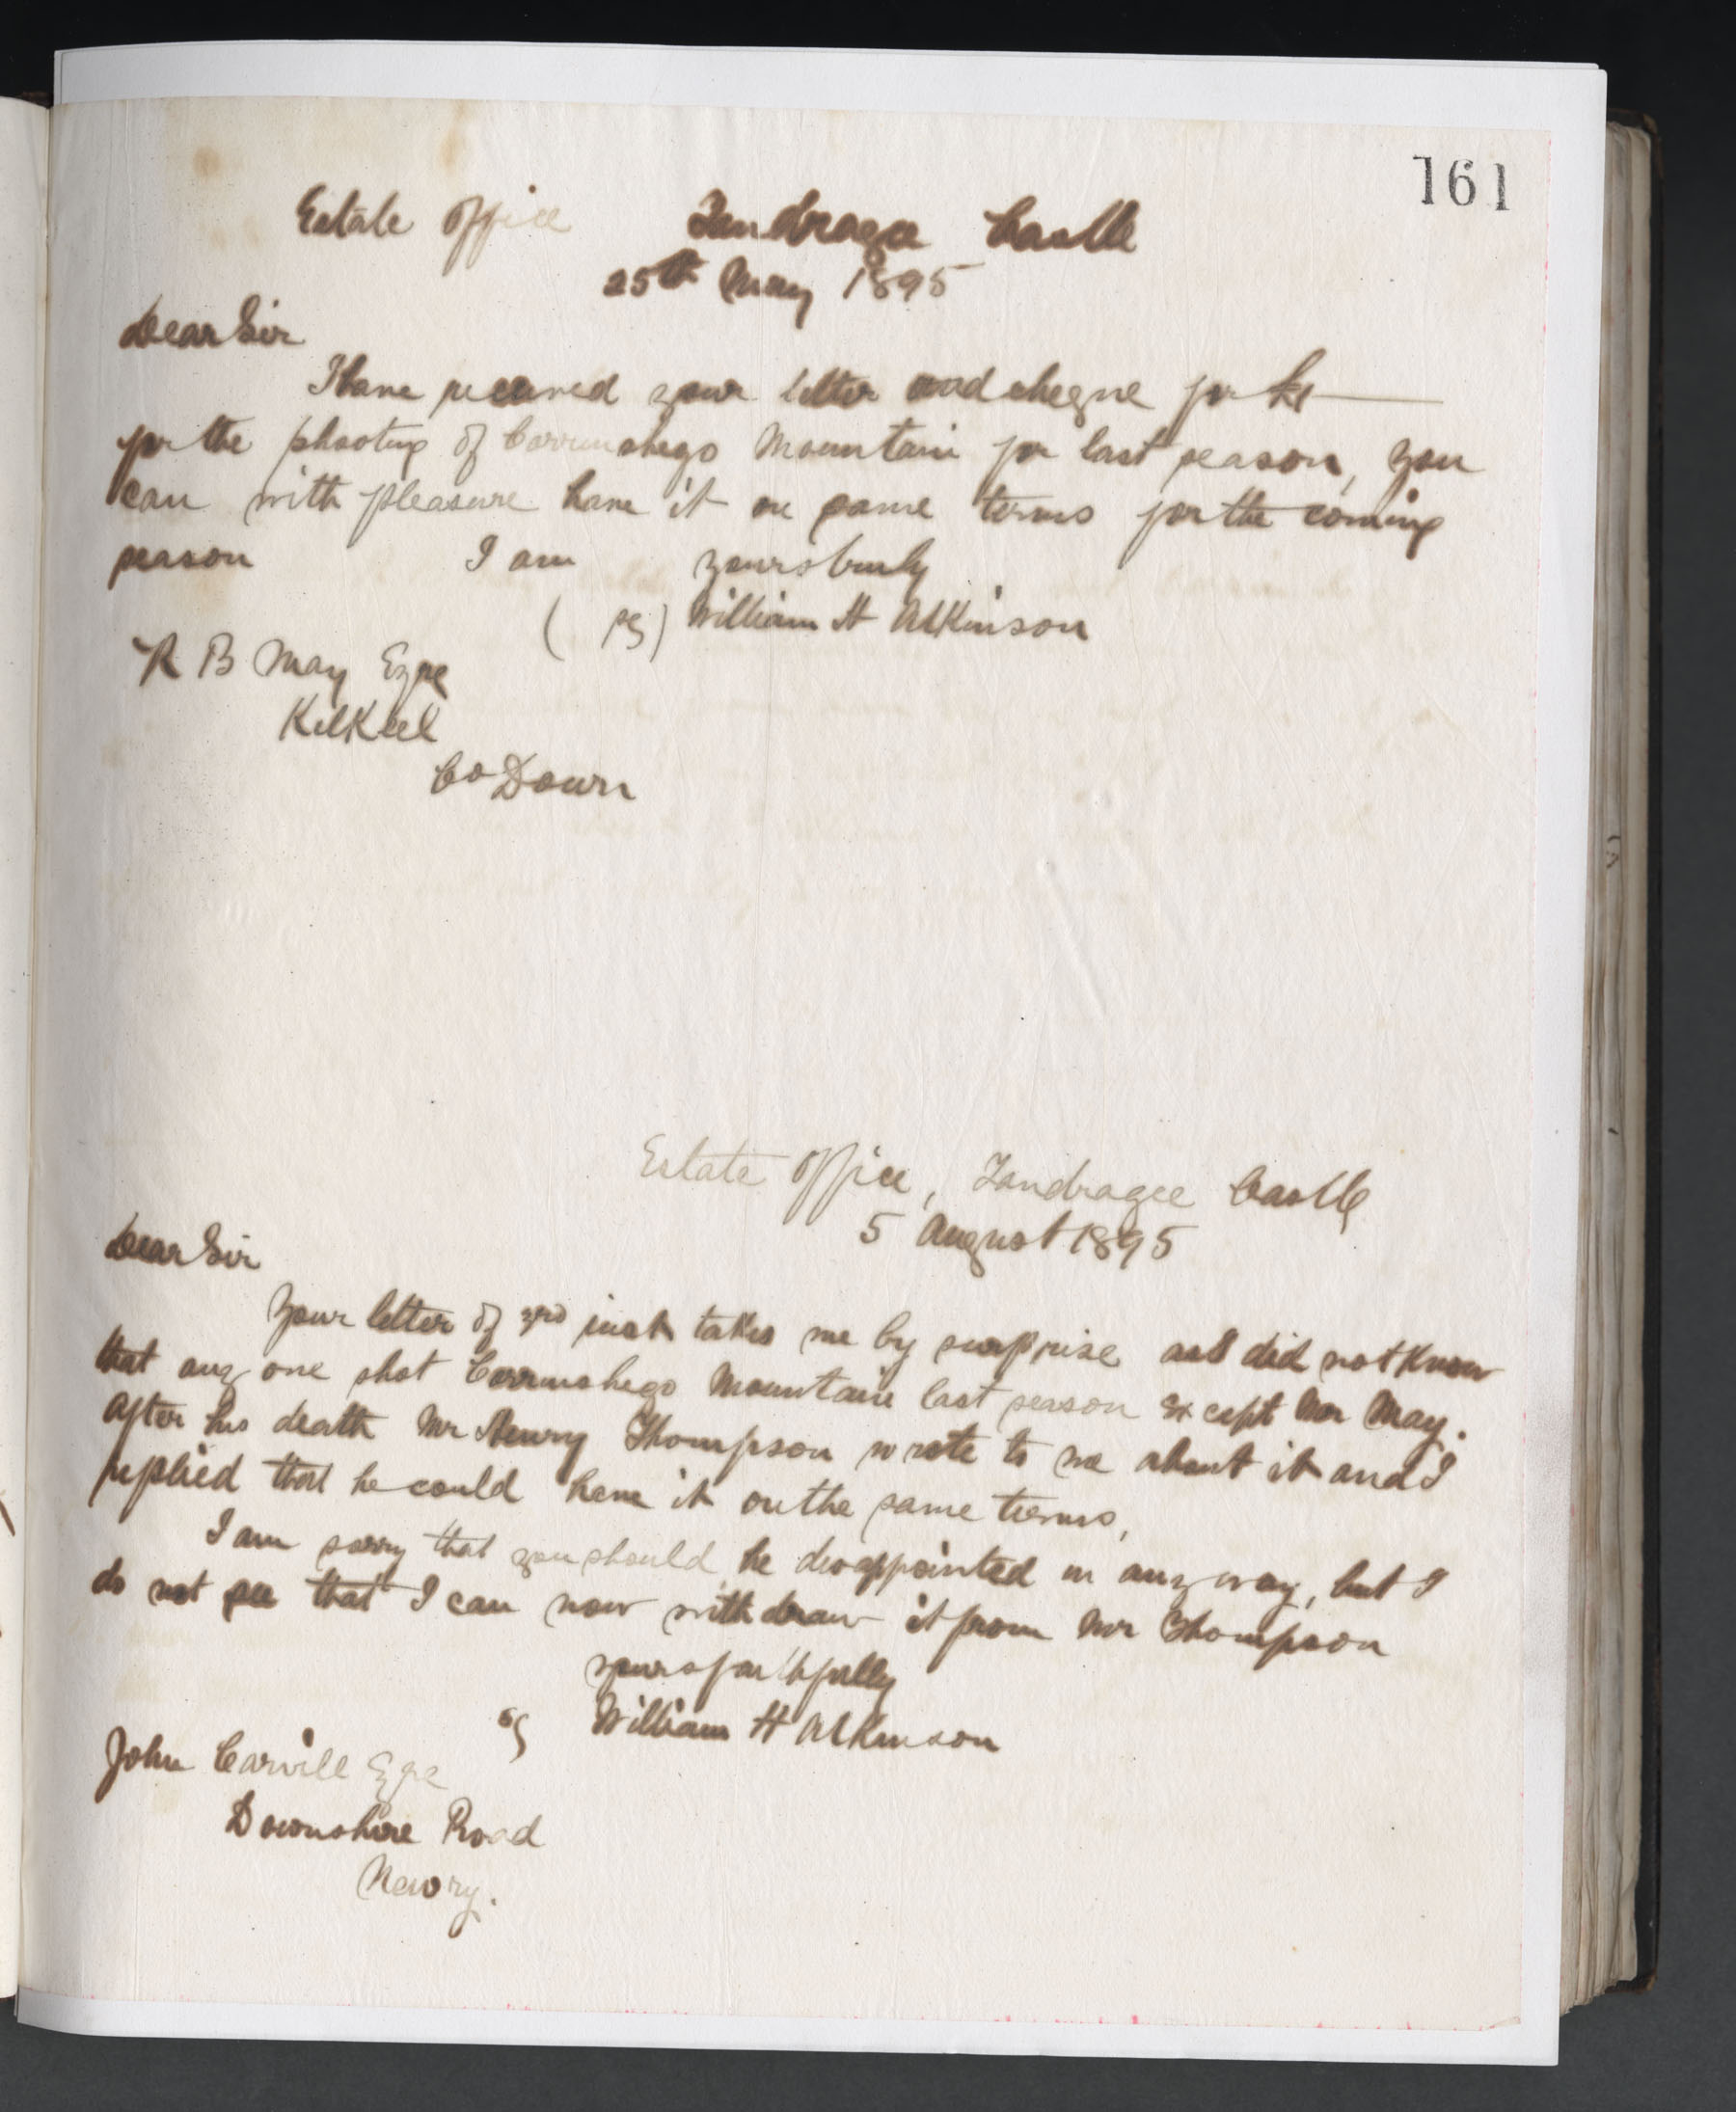 161
Estate Office Tandragee Castle
25th May 1895
Dear Sir
I have received your letter and cheque for £1
for the shooting of Carrimshego Mountain for last season, you
can with pleasure have it on same terms for the coming
season I am yours truly
( sg) William H Atkinson
R B May Esqre
Kilkeel
Co Down
Estate Office, Tandragee Castle
5 August 1895
Dear Sir
Your letter of 3rd inst takes me by surprise as I did not know
that any one shot Carrimshego Mountain last season except Mr May.
After his death Mr Henry Thompson wrote to me about it and I
replied that he could have it on the same terms,
I am sorry that you should be disappointed in any way, but I
do not see that I can now withdraw it from Mr Thompson
yours faithfully
sg William H Atkinson
John Carvill Esqre
Downshire Road
Newry.